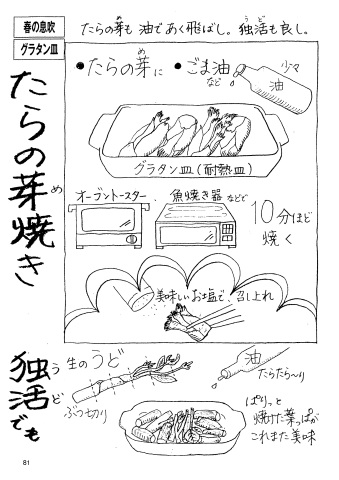 春の息吹
グラタン皿
たらの芽焼き
め
たらの芽も油であく飛ばし。独活も良し。
め
うど
●たらの芽に
め
●ごま油
など
油
少々
グラタン皿(耐熱皿)
オーブントースター
魚焼き器などで
10分ほど
焼く
美味しいお塩で、召し上れ
独活でも
うど
生のうど
ぶつ切り
油
たらたら〜り
ぱりっと
焼けた葉っぱが
これまた美味
81